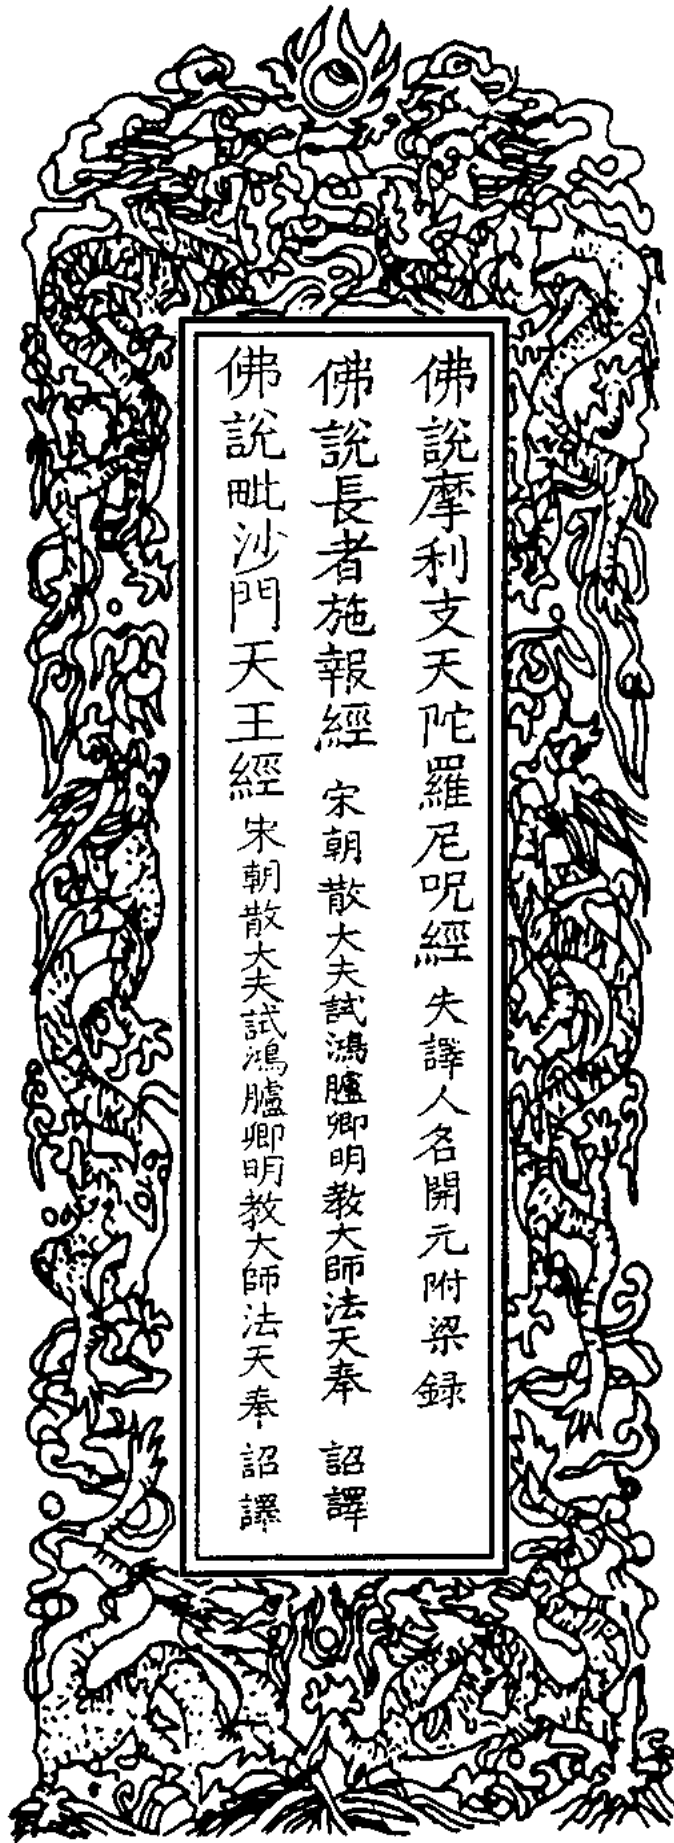 佛說摩利支天陀羅尼呪經 失譯人名開元附梁錄
佛說長者施報經 宋朝散大夫試鴻臚卿明教大師法天奉 詔譯
佛說毗沙門天王經 宋朝散大夫試鴻臚卿明教大師法天奉 詔譯